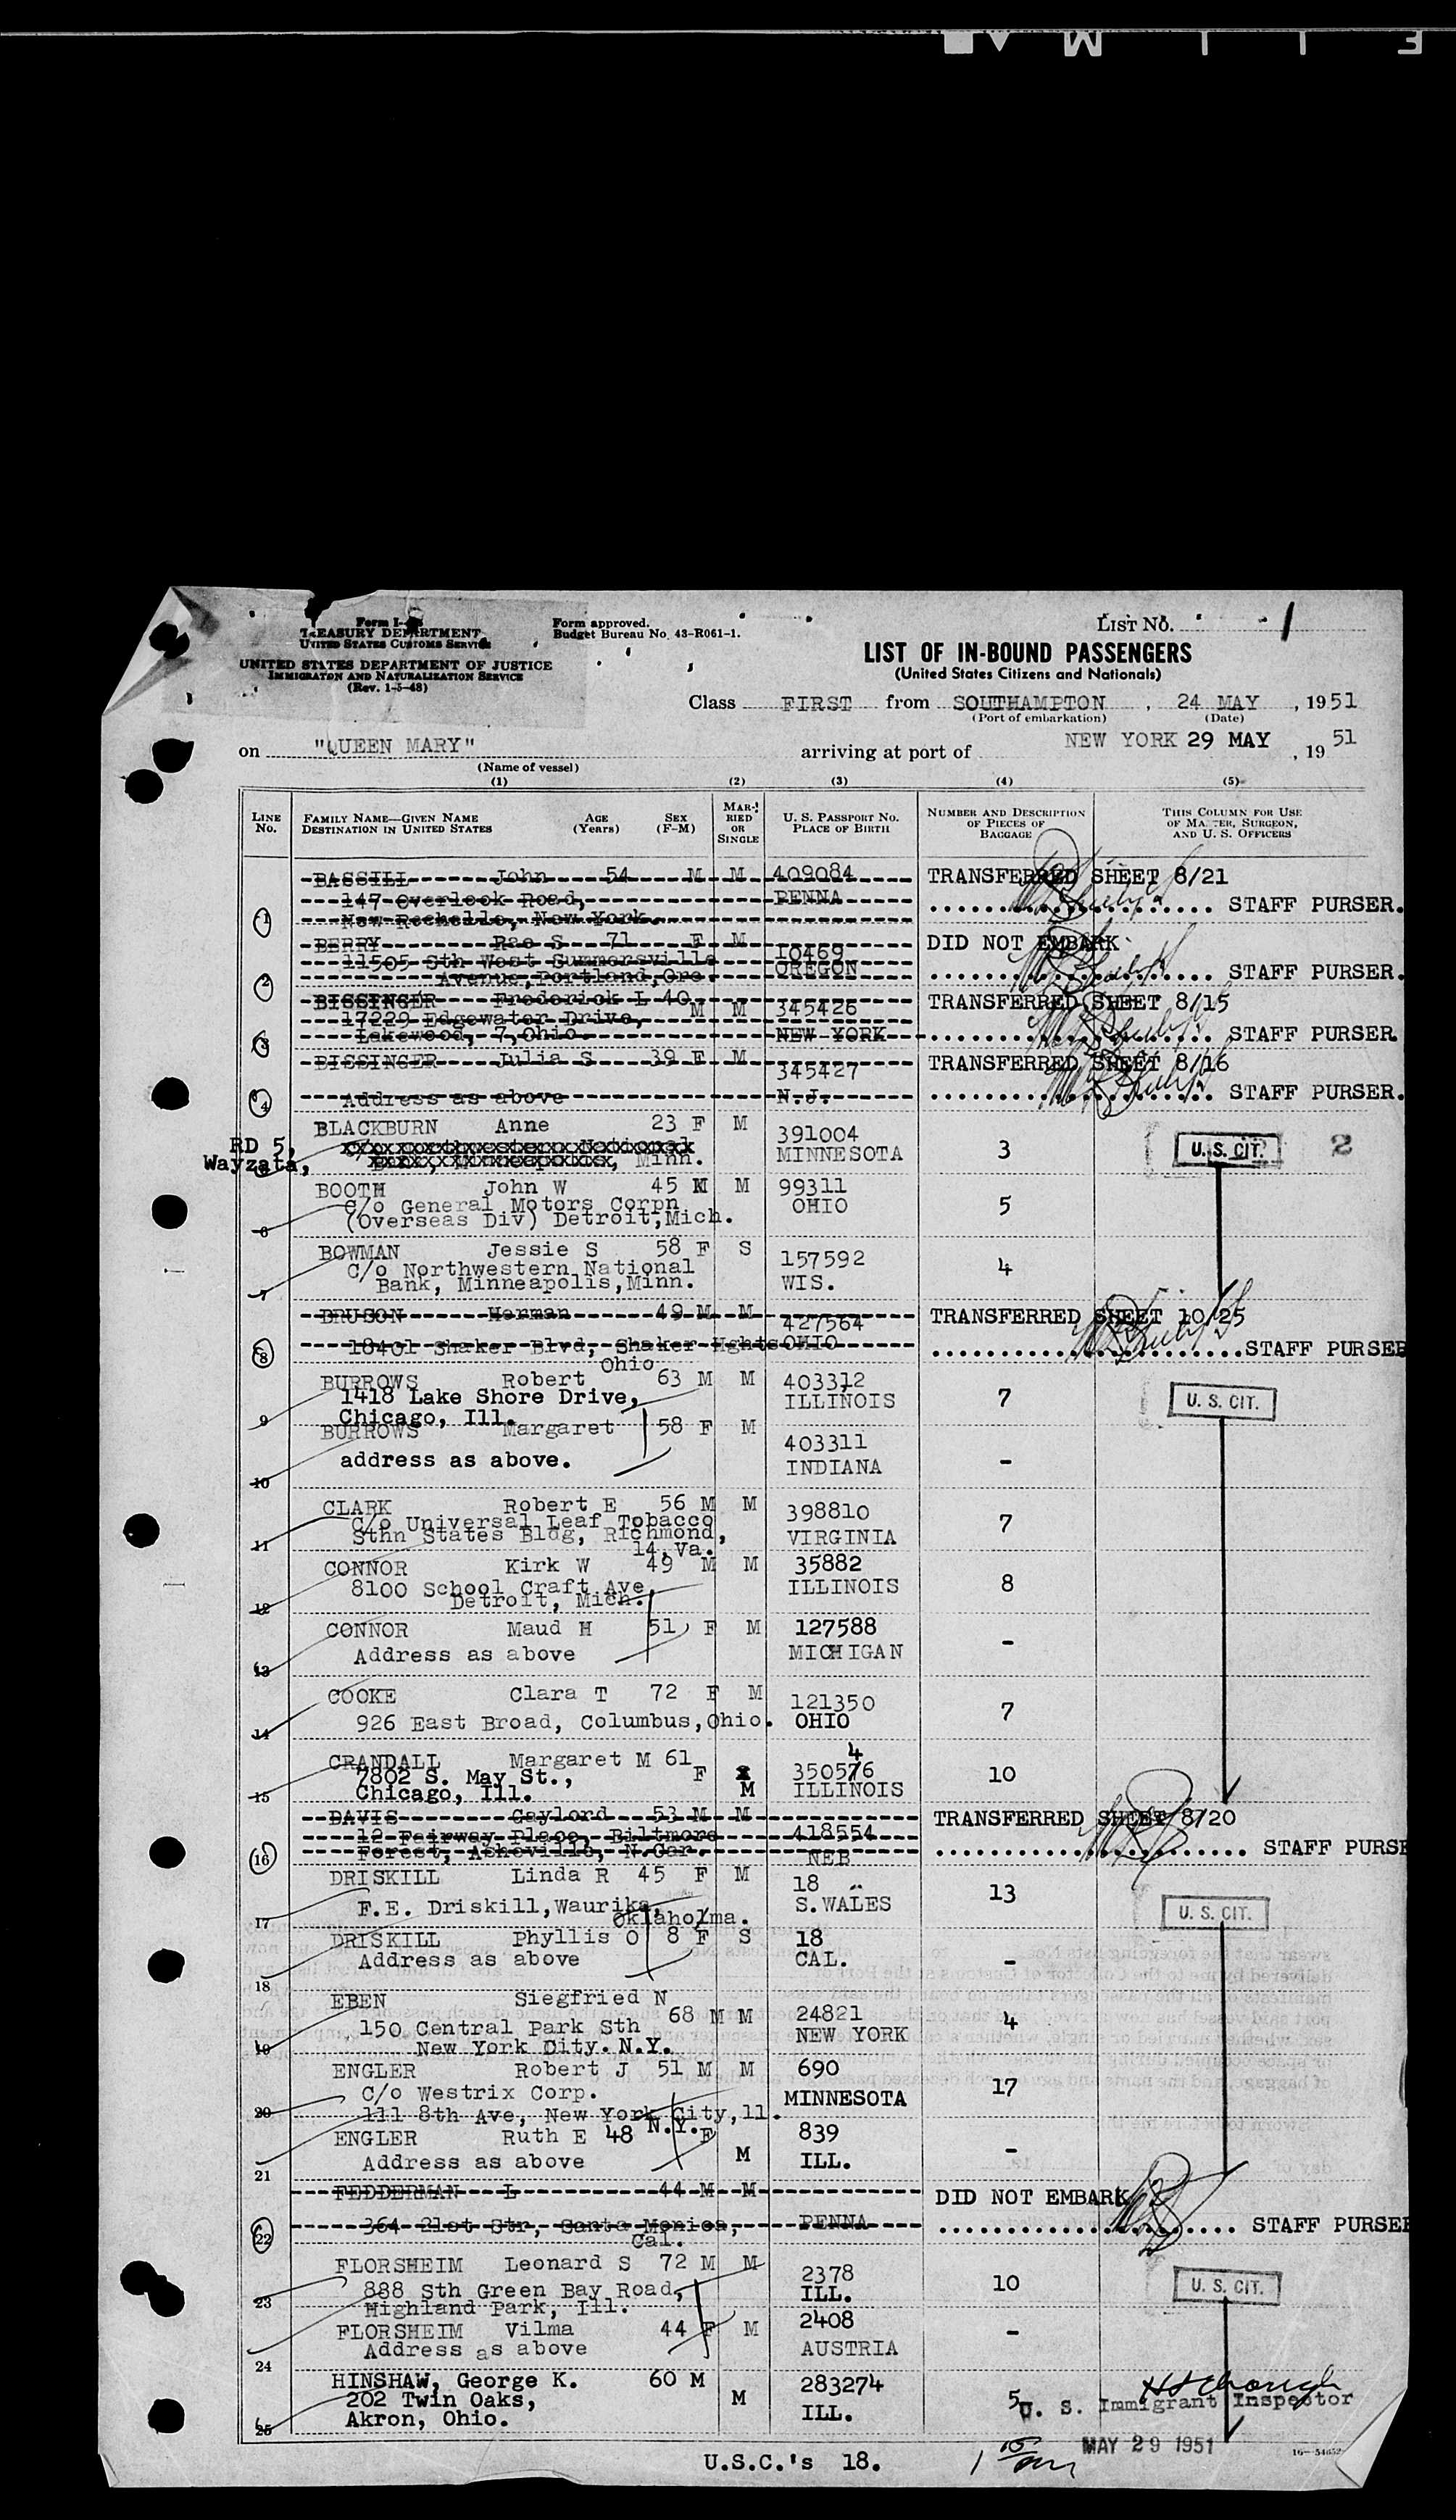 Form I-
TREASURY DEPARTMENT
UNITED STATES CUSTOMS SERVICE
UNITED STATES DEPARTMENT OF JUSTICE
IMMIGRATON AND NATURALIZATION SERVICE
(Rev. 1-5-48)
Form approved.
Budget Bureau No. 43-R061-1.
LIST NO. 1
LIST OF IN-BOUND PASSENGERS
(United States Citizens and Nationals)
Class FIRST from SOUTHAMPTON , 24 MAY , 1951
(Port of embarkation) (Date)
on "QUEEN MARY" arriving at port of NEW YORK 29 MAY , 19 51
(Name of vessel)
(1) (2) (3) (4) (5)
LINE No. FAMILY NAME—GIVEN NAME DESTINATION IN UNITED STATES AGE (Years) SEX (F-M) MARRIED OR SINGLE U. S. PASSPORT NO. PLACE OF BIRTH NUMBER AND DESCRIPTION OF PIECES OF BAGGAGE THIS COLUMN FOR USE OF MASTER, SURGEON, AND U. S. OFFICERS
BASSILI John 54 M M 409084 TRANSFERRED SHEET 8/21
147 Overlook Road, PENNA
1 New Rochelle, New York. STAFF PURSER.
BERRY Rae S 71 F M 10469 DID NOT EMBARK
11505 Sth West Summersville OREGON
2 Avenue, Portland, Ore. STAFF PURSER.
BISSINGER Frederick L 40 M M 345426 TRANSFERRED SHEET 8/15
17229 Edgewater Drive,
3 Lakewood, 7, Ohio. NEW YORK STAFF PURSER
BISSINGER Julia S 39 F M 345427 TRANSFERRED SHEET 8/16
4 Address as above N.J. STAFF PURSER.
BLACKBURN Anne 23 F M 391004
RD 5, MINNESOTA 3 U. S. CIT. 2
Wayzata, Minn.
BOOTH John W 45 M M 99311
C/o General Motors Corpn OHIO 5
6 (Overseas Div) Detroit,Mich.
BOWMAN Jessie S 58 F S 157592
C/o Northwestern National 4
7 Bank, Minneapolis,Minn. WIS.
BRUSON Herman 49 M M 427564 TRANSFERRED SHEET 10/25
8 18401 Shaker Blvd, Shaker Hghts OHIO STAFF PURSER
Ohio
BURROWS Robert 63 M M 403312
1418 Lake Shore Drive, ILLINOIS 7 U. S. CIT.
9 Chicago, Ill.
BURROWS Margaret 58 F M 403311
address as above. INDIANA -
10
CLARK Robert E 56 M M 398810
C/o Universal Leaf Tobacco 7
11 Sthn States Bldg, Richmond, VIRGINIA
14,Va.
CONNOR Kirk W 49 M M 35882
8100 School Craft Ave, ILLINOIS 8
12 Detroit, Mich.
CONNOR Maud H 51 F M 127588
Address as above MICHIGAN -
13
COOKE Clara T 72 F M 121350
926 East Broad, Columbus,Ohio. OHIO 7
14
CRANDALL Margaret M 61 F M 4
7802 S. May St., 350576 10
15 Chicago, Ill. ILLINOIS
DAVIS Gaylord 53 M M TRANSFERRED SHEET 8/20
12 Fairway Place, Biltmore 418554
16 Forest, Asheville, N.Car. NEB STAFF PURSE
DRISKILL Linda R 45 F M 18 13
17 F.E. Driskill,Waurika, S.WALES U. S. CIT.
Oklahoma.
DRISKILL Phyllis O 8 F S 18
Address as above CAL. -
18
EBEN Siegfried N 68 M M 24821
150 Central Park Sth NEW YORK 4
19 New York City. N.Y.
ENGLER Robert J 51 M M 690
C/o Westrix Corp. MINNESOTA 17
20 111 8th Ave, New York City,11.
N.Y.
ENGLER Ruth E 48 F M 839
Address as above ILL. -
21
FEDDERMAN L 44 M M DID NOT EMBARK
22 364 21st Str, Santa Monica, PENNA STAFF PURSER
Cal.
FLORSHEIM Leonard S 72 M M 2378
888 Sth Green Bay Road, ILL. 10 U. S. CIT.
23 Highland Park, Ill.
FLORSHEIM Vilma 44 F M 2408
Address as above AUSTRIA -
24
HINSHAW, George K. 60 M M 283274
202 Twin Oaks, 5 U. S. Immigrant Inspector
25 Akron, Ohio. ILL.
MAY 29 1951
U.S.C.'s 18.